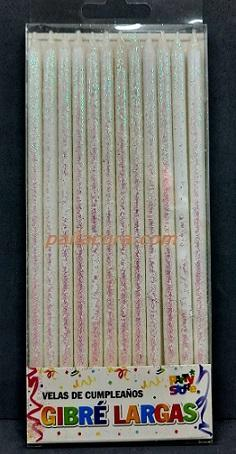 pallacrea.com
VELAS DE CUMPLEAÑOS
PARTY
STORE
GIBRÉ LARGAS